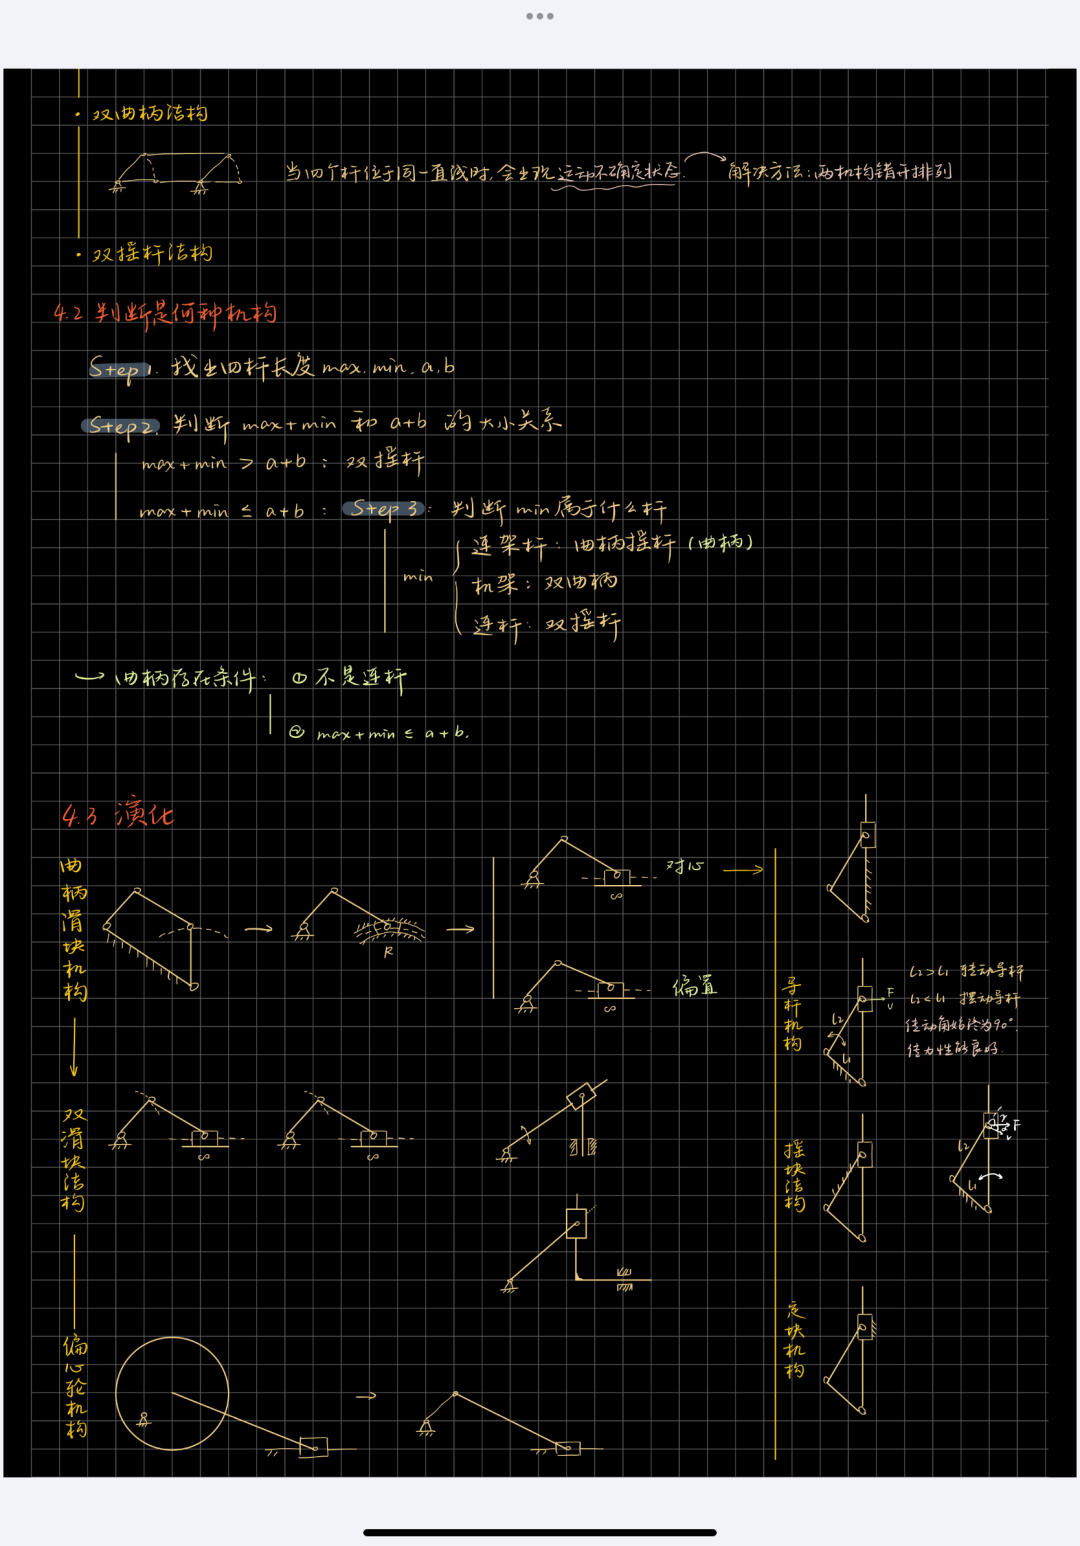 · 双曲柄结构
当四个杆位于同一直线时,会出现运动不确定状态. 解决方法:两机构错开排列
· 双摇杆结构
4.2 判断是何种机构
Step 1. 找出四杆长度 max. min. a, b
Step 2. 判断 max+min 和 a+b 的大小关系
max+min > a+b : 双摇杆
max+min ≤ a+b : Step 3: 判断 min 属于什么杆
min
连架杆: 曲柄摇杆 (曲柄)
机架: 双曲柄
连杆: 双摇杆
→ 曲柄存在条件: ① 不是连杆
② max+min ≤ a+b.
4.3 演化
曲柄滑块机构
R
∞
对心
∞
偏置
双滑块结构
∞
∞
偏心轮机构
导杆机构
L2
L1
F
V
L2>L1 转动导杆
L2<L1 摆动导杆
传动角始终为90°.
传力性能良好.
摇块结构
L2
L1
F
定块机构